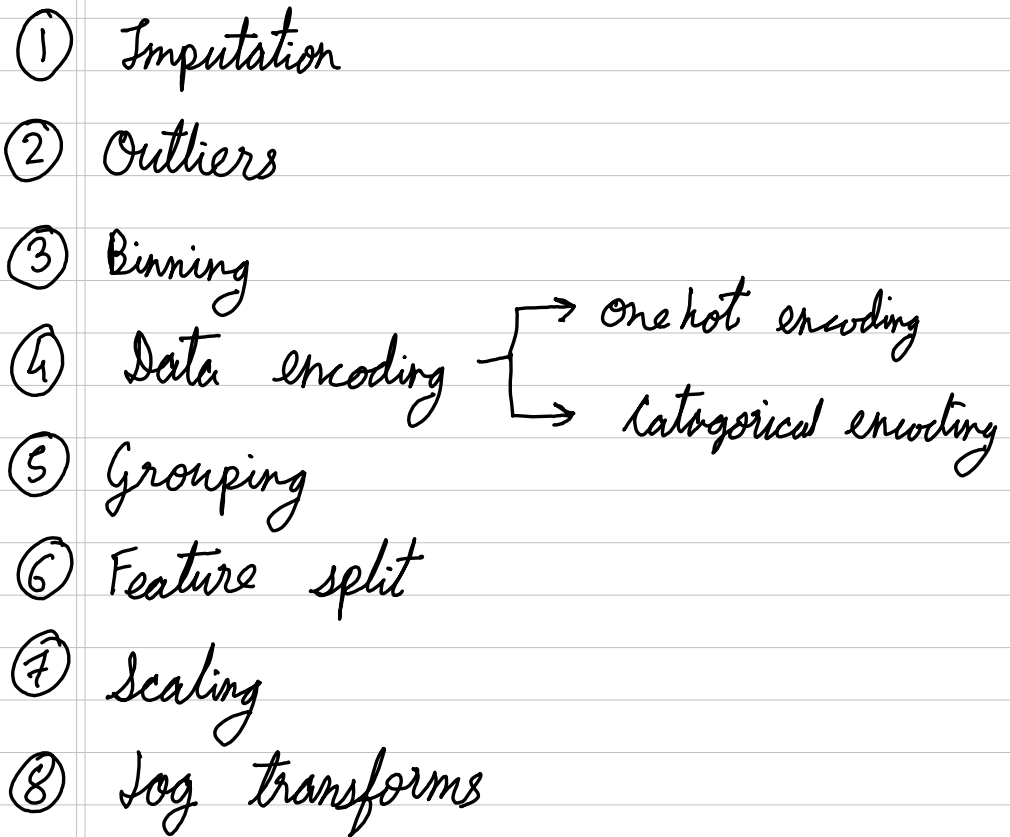 1 Imputation
2 Outliers
3 Binning
4 Data encoding → one hot encoding
→ Catagorical encoding
5 Grouping
6 Feature split
7 Scaling
8 Log transforms